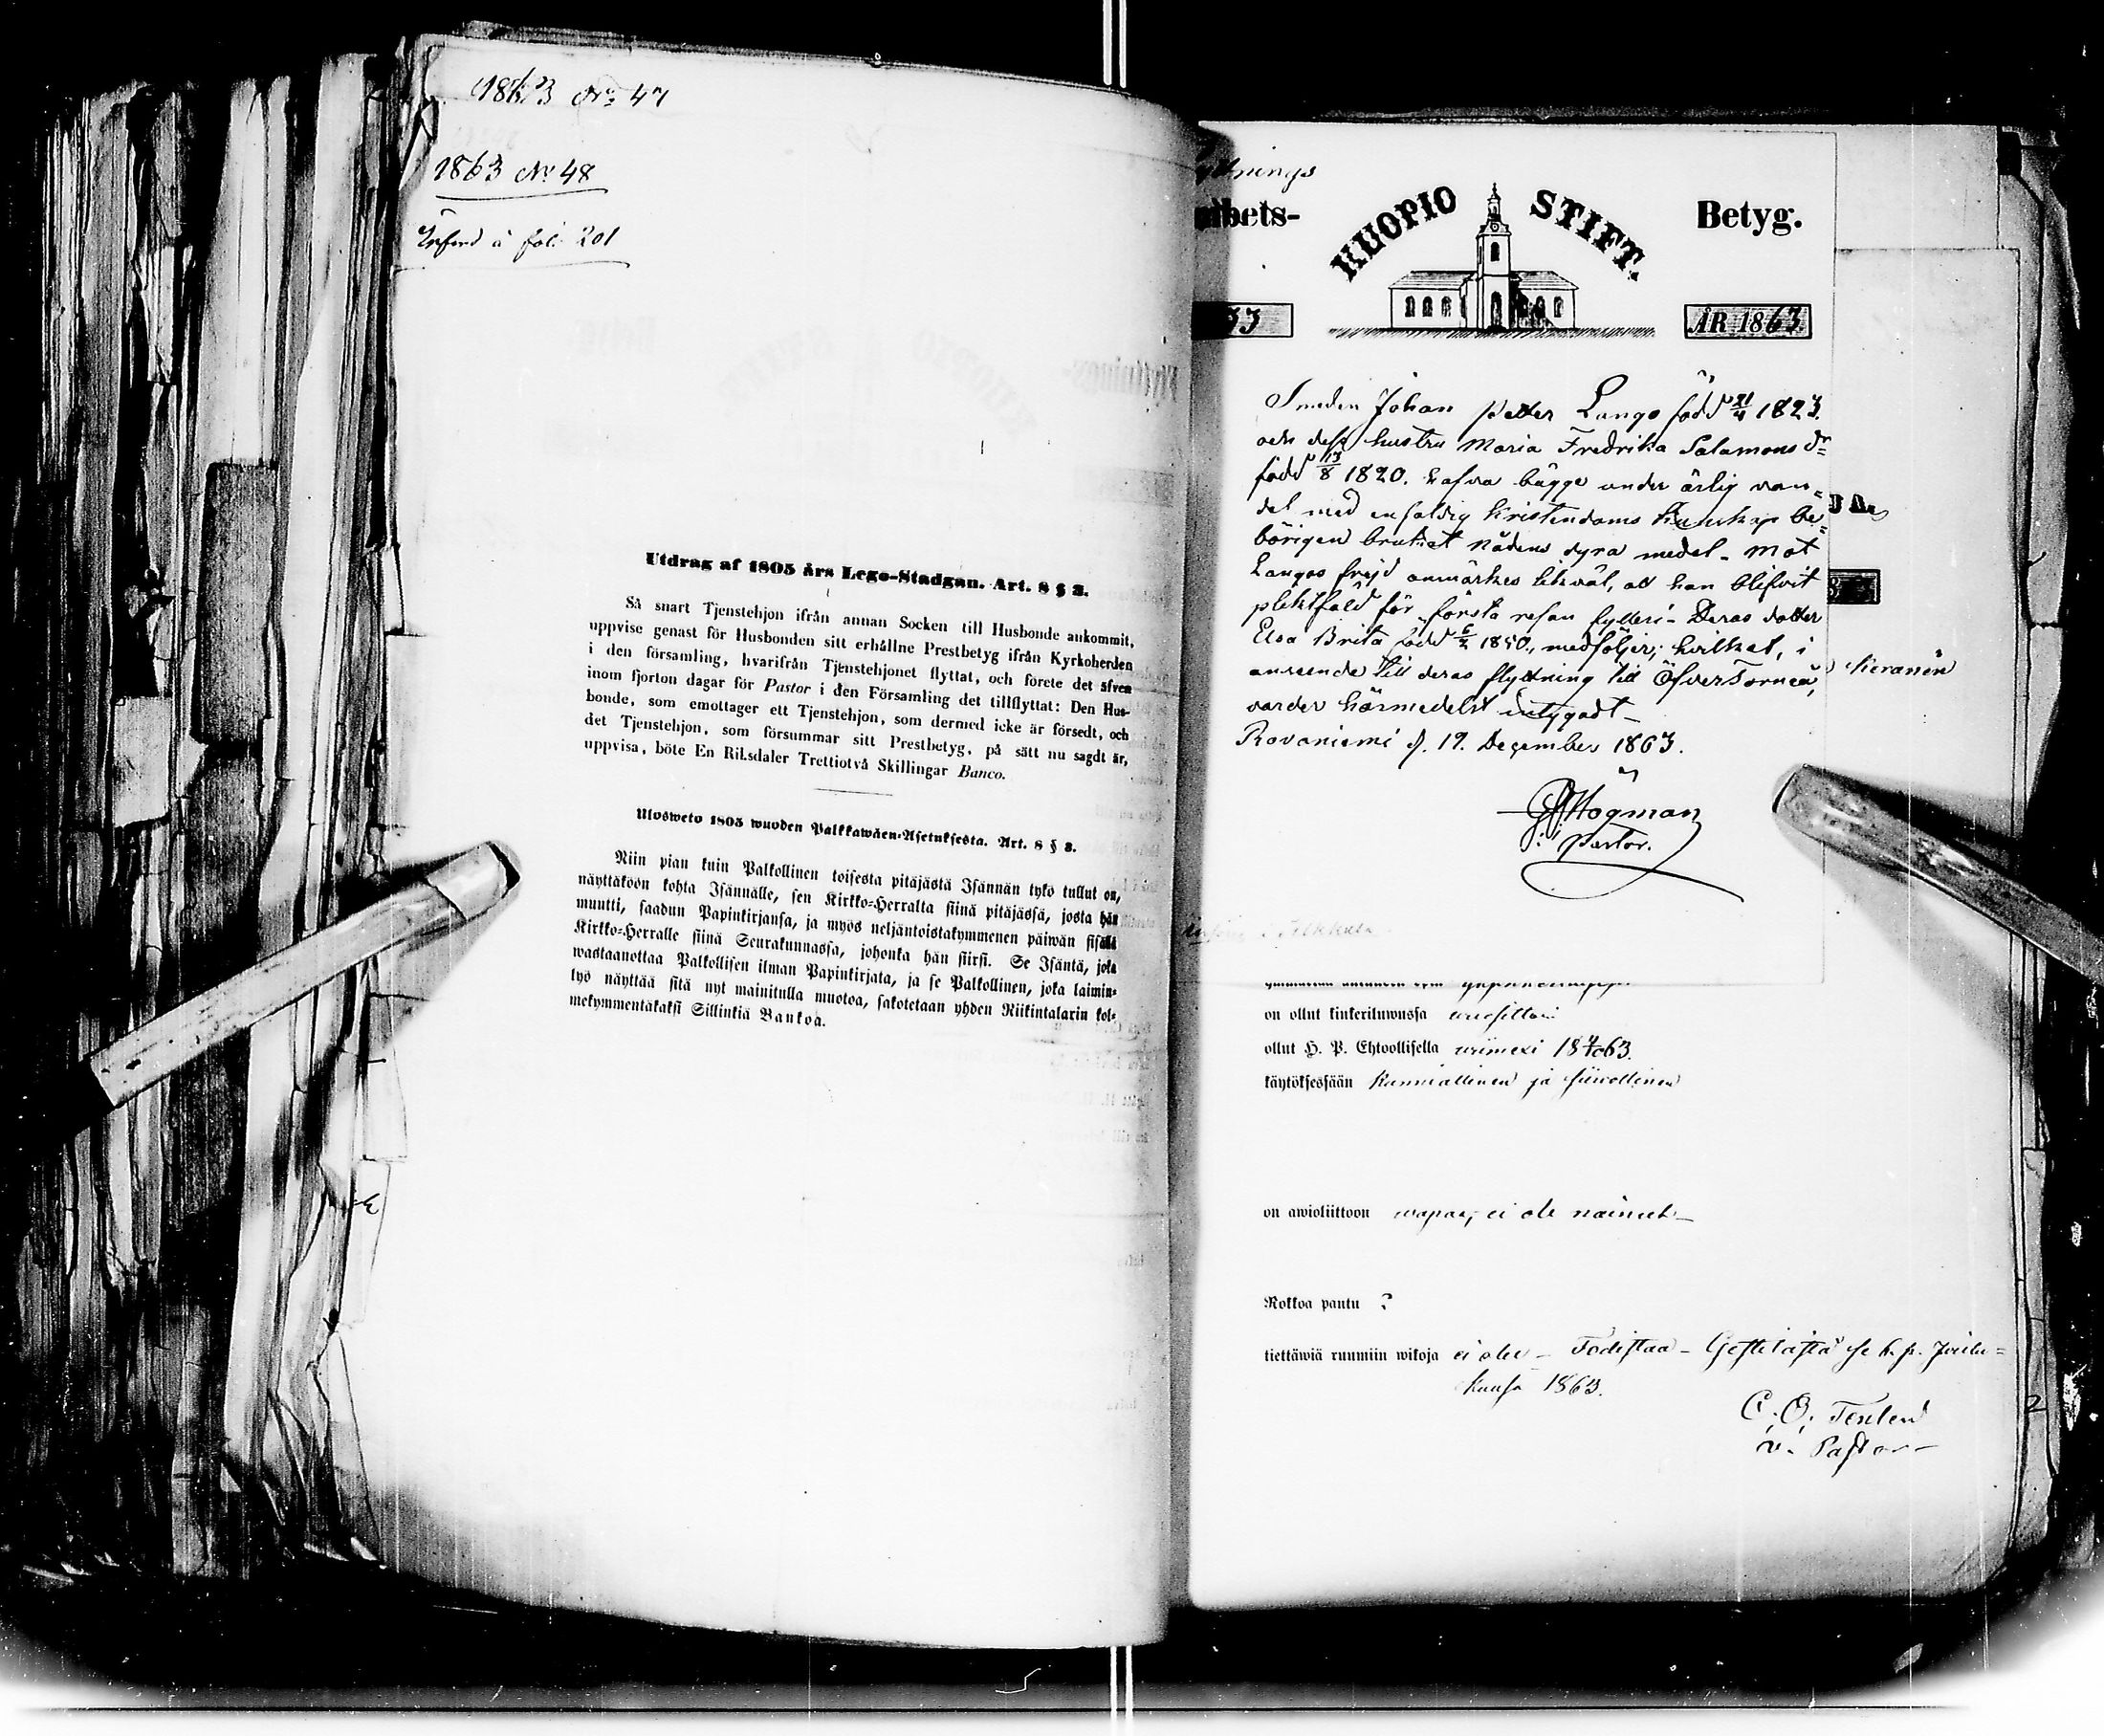 1863 No 47
1863 No 48
Införd å fol. 201
Utdrag af 1805 års Lego-Stadgan. Art. 8 § 3.
Så snart Tjenstehjon ifrån annan Socken till Husbonde ankommit,
uppvise genast för Husbonden sitt erhållne Prestbetyg ifrån Kyrkoherden
i den församling, hvarifrån Tjenstehjonet flyttat, och förete det äfven
inom fjorton dagar för Pastor i den Församling det tillflyttat: Den Hus-
bonde, som emottager ett Tjenstehjon, som dermed icke är försedt, och
det Tjenstehjon, som försummar sitt Prestbetyg, på sätt nu sagdt är,
uppvisa, böte En Riksdaler Trettiotvå Skillingar Banco.
Ulosweto 1805 wuoden Palkkawäen-Asetuksesta. Art. 8 § 3.
Niin pian kuin Palkollinen toisesta pitäjästä Isännän tykö tullut on,
näyttäköön kohta Isännälle, sen Kirkko-Herralta siinä pitäjässä, josta hän
muutti, saadun Papinkirjansa, ja myös neljäntoistakymmenen päiwän sisällä
Kirkko-Herralle siinä Seurakunnassa, johonka hän siirsi. Se Isäntä, joka
wastaanottaa Palkollisen ilman Papinkirjata, ja se Palkollinen, joka laimin-
lyö näyttää sitä nyt mainitulla muotoa, sakotetaan yhden Riikintalarin kol-
mekymmentäkaksi Sillinkiä Bankoa.
ttnings
bets-
KUOPIO STIFT.
Betyg.
33
ÅR 1863
Smeden Johan Petter Lango född 21/4 1823.
och dess hustru Maria Fredrika Salamons dr
född 13/8 1820. hafva bägge under ärlig van-
del med enfaldig Kristendoms kunskap be-
hörigen brukat nådens dyra medel. Mot
Langos frejd anmärkes likväl, att han blifvit
pliktfäld för första resan fylleri. Deras dotter
Elsa Brita född 6/2 1850, medföljer; hvilket, i
anseende till deras flyttning till Öfver Torneå,
varder härmedelst intygadt.
Rovaniemi d. 19. December 1863.
Högman
Pastor.
Keranen
on ollut kinkeriluwussa
ollut H. P. Ehtoollisella wiimexi 18 63.
käytöksessään kunniallinen ja siiwollinen
on awioliittoon wapaa, ei ole nainut
Rokkoa pantu ?
tiettäwiä ruumiin wikoja ei ole Todistaa Joulu-
kuusa 1863.
v. Pastor